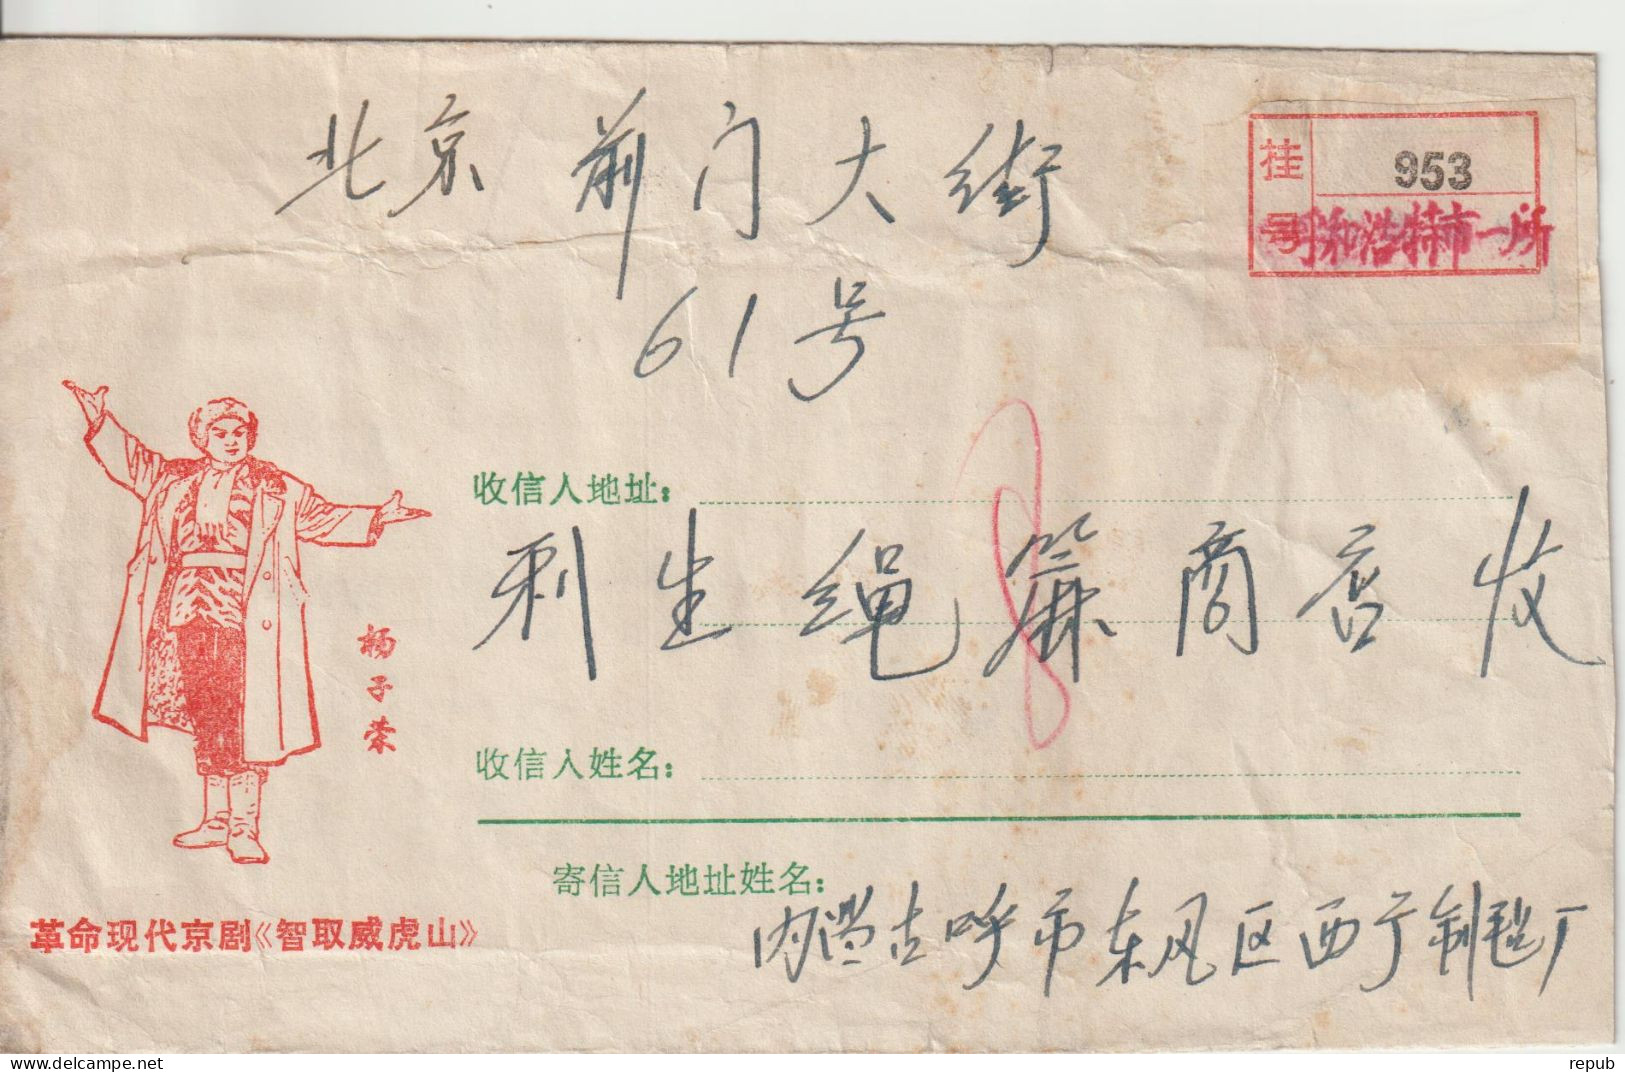 北京前门大街
挂号
953
呼和浩特市一所
61号
收信人地址:
利生绳簾商店收
杨子荣
收信人姓名:
寄信人地址姓名:
革命现代京剧《智取威虎山》
内蒙古呼市东风区西厂制毡厂
repub